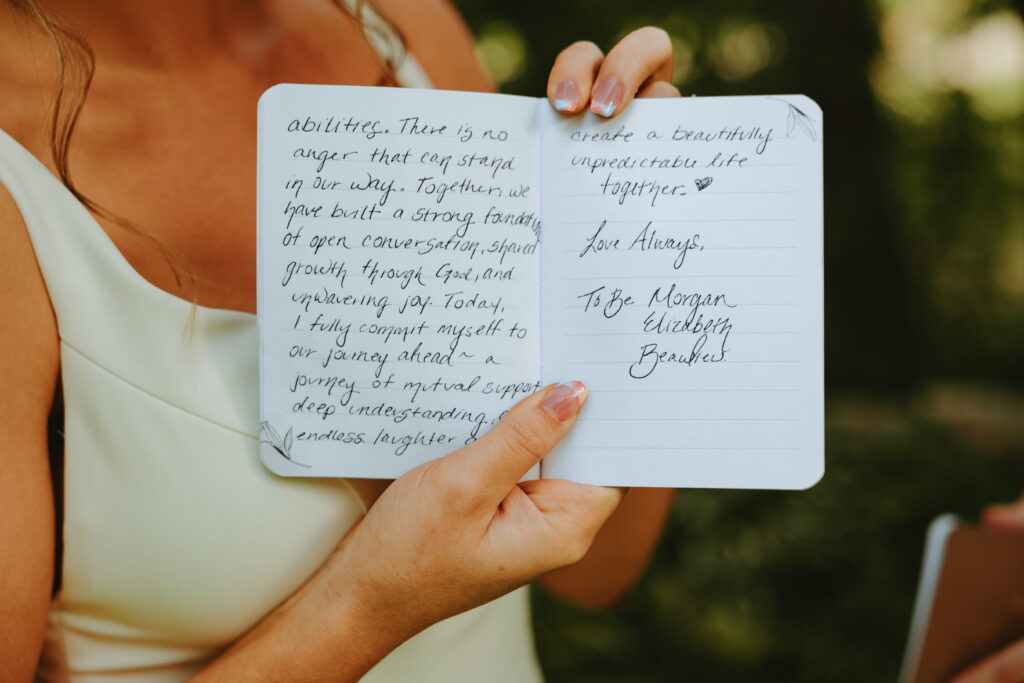 abilities. There is no
anger that can stand
in our way. Together, we
have built a strong foundation
of open conversation, shared
growth through God, and
unwavering joy. Today,
I fully commit myself to
our journey ahead ~ a
journey of mutual support
deep understanding,
endless laughter
create a beautifully
unpredictable life
together. ♥
Love Always,
To Be Morgan
Elizabeth
Beaulieu